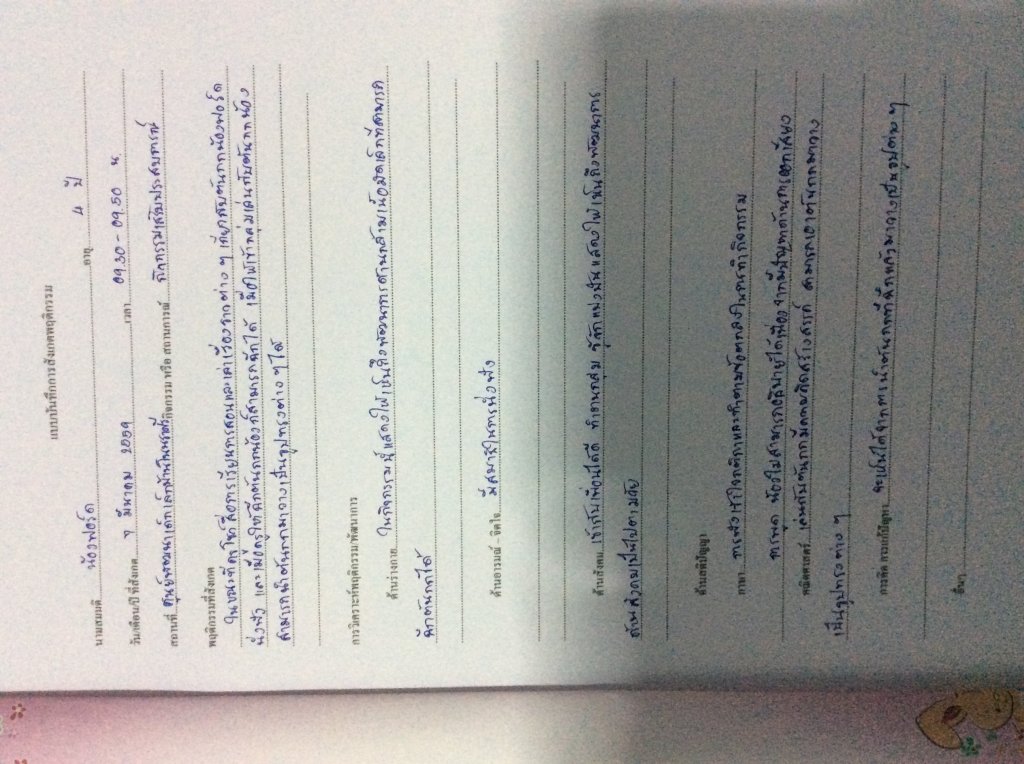 แบบบันทึกการสังเกตพฤติกรรม
นามสมมติ น้องฟอร์ด อายุ 4 ปี
วัน/เดือน/ปี ที่สังเกต 7 มีนาคม 2559 เวลา 09.30 - 09.50 น
สถานที่ ศูนย์พัฒนาเด็กเล็ก กิจกรรม หรือ สถานการณ์ กิจกรรมเสริมประสบการณ์
พฤติกรรมที่สังเกต
ในขณะที่ครูใช้สื่อการเรียนการสอนและเล่าเรื่องราวต่าง ๆ เกี่ยวกับต้นกกน้องฟอร์ด
นั่งฟัง และเมื่อครูให้ฉีกต้นกกน้องก็สามารถฉีกได้ เมื่อให้เข้ากลุ่มเล่นกับต้นกกน้อง
สามารถนำต้นกกมาวางเป็นรูปทรงต่าง ๆ ได้
การวิเคราะห์พฤติกรรม/พัฒนาการ
ด้านร่างกาย ในกิจกรรมนี้แสดงให้เห็นถึงพัฒนาการด้านกล้ามเนื้อมัดเล็กที่สามารถ
ฉีกต้นกกได้
ด้านอารมณ์ - จิตใจ มีสมาธิในการนั่งฟัง
ด้านสังคม เข้ากับเพื่อนได้ดี ทำงานกลุ่ม รู้จักแบ่งปัน แสดงให้เห็นถึงพัฒนาการ
ด้านสังคมเป็นไปตามวัย
ด้านสติปัญญา
ภาษา การฟังเข้าใจกติกาและทำตามข้อตกลงในการทำกิจกรรม
การพูด น้องไม่สามารถอธิบายได้เนื่องจากมีปัญหาด้านการออกเสียง
คณิตศาสตร์ เล่นกับต้นกกมีความคิดสร้างสรรค์ สามารถเอาต้นกกมาวาง
เป็นรูปทรงต่าง ๆ
การคิด การแก้ปัญหา จะเห็นได้จากการนำต้นกกที่ฉีกแล้วมาวางเป็นรูปต่าง ๆ
อื่นๆ